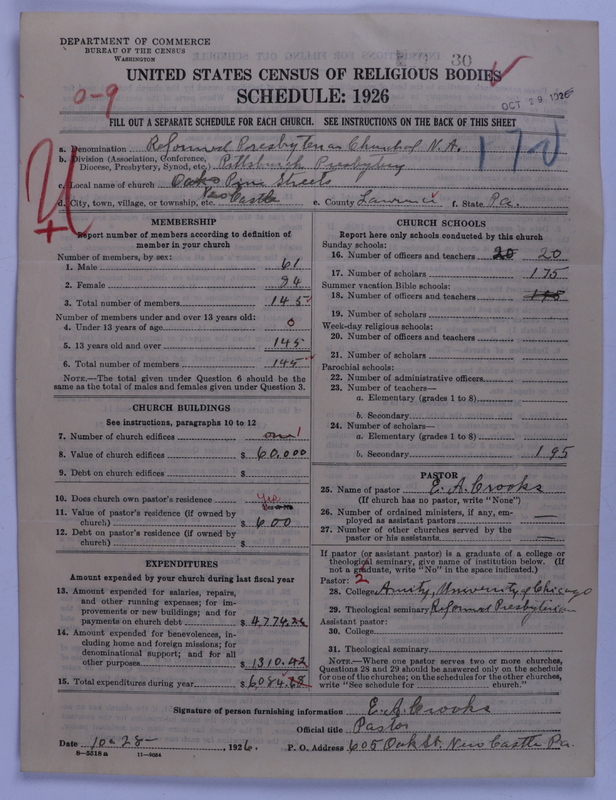 DEPARTMENT OF COMMERCE
BUREAU OF THE CENSUS
WASHINGTON
30
UNITED STATES CENSUS OF RELIGIOUS BODIES
SCHEDULE: 1926
OCT 29 1926
0-9
FILL OUT A SEPARATE SCHEDULE FOR EACH CHURCH. SEE INSTRUCTIONS ON THE BACK OF THIS SHEET
a. Denomination Reformed Presbyterian Church of N.A.
b. Division (Association, Conference, Diocese, Presbytery, Synod, etc.) Pittsburgh Presbytery
c. Local name of church Oak Pine Streets
d. City, town, village, or township, etc. New Castle e. County Lawrence f. State Pa.
MEMBERSHIP
Report number of members according to definition of member in your church
Number of members, by sex:
1. Male 61
2. Female 84
3. Total number of members 145
Number of members under and over 13 years old:
4. Under 13 years of age 0
5. 13 years old and over 145
6. Total number of members 145
NOTE.—The total given under Question 6 should be the same as the total of males and females given under Question 3.
CHURCH BUILDINGS
See instructions, paragraphs 10 to 12
7. Number of church edifices one 1
8. Value of church edifices $ 60,000
9. Debt on church edifices $
10. Does church own pastor's residence Yes
11. Value of pastor's residence (if owned by church) $ 600
12. Debt on pastor's residence (if owned by church) $
EXPENDITURES
Amount expended by your church during last fiscal year
13. Amount expended for salaries, repairs, and other running expenses; for improvements or new buildings; and for payments on church debt $ 4,774.26
14. Amount expended for benevolences, including home and foreign missions; for denominational support; and for all other purposes $ 1310.42
15. Total expenditures during year $ 6084.68
CHURCH SCHOOLS
Report here only schools conducted by this church
Sunday schools:
16. Number of officers and teachers 20 20
17. Number of scholars 175
Summer vacation Bible schools:
18. Number of officers and teachers
19. Number of scholars
Week-day religious schools:
20. Number of officers and teachers
21. Number of scholars
Parochial schools:
22. Number of administrative officers
23. Number of teachers—
a. Elementary (grades 1 to 8)
b. Secondary
24. Number of scholars—
a. Elementary (grades 1 to 8)
b. Secondary 195
PASTOR
25. Name of pastor E. A. Crooks
(If church has no pastor, write "None")
26. Number of ordained ministers, if any, employed as assistant pastors —
27. Number of other churches served by the pastor or his assistants —
If pastor (or assistant pastor) is a graduate of a college or theological seminary, give name of institution below. (If not a graduate, write "No" in the space indicated.)
Pastor: 2
28. College Amity, University of Chicago
29. Theological seminary Reformed Presbyterian
Assistant pastor:
30. College
31. Theological seminary
NOTE.—Where one pastor serves two or more churches, Questions 28 and 29 should be answered only on the schedule for one of the churches; on the schedules for the other churches, write "See schedule for church."
Signature of person furnishing information E. A. Crooks
Official title Pastor
Date 10-28-, 1926. P. O. Address 605 Oak St. New Castle Pa.
8-5518 a 11-9034